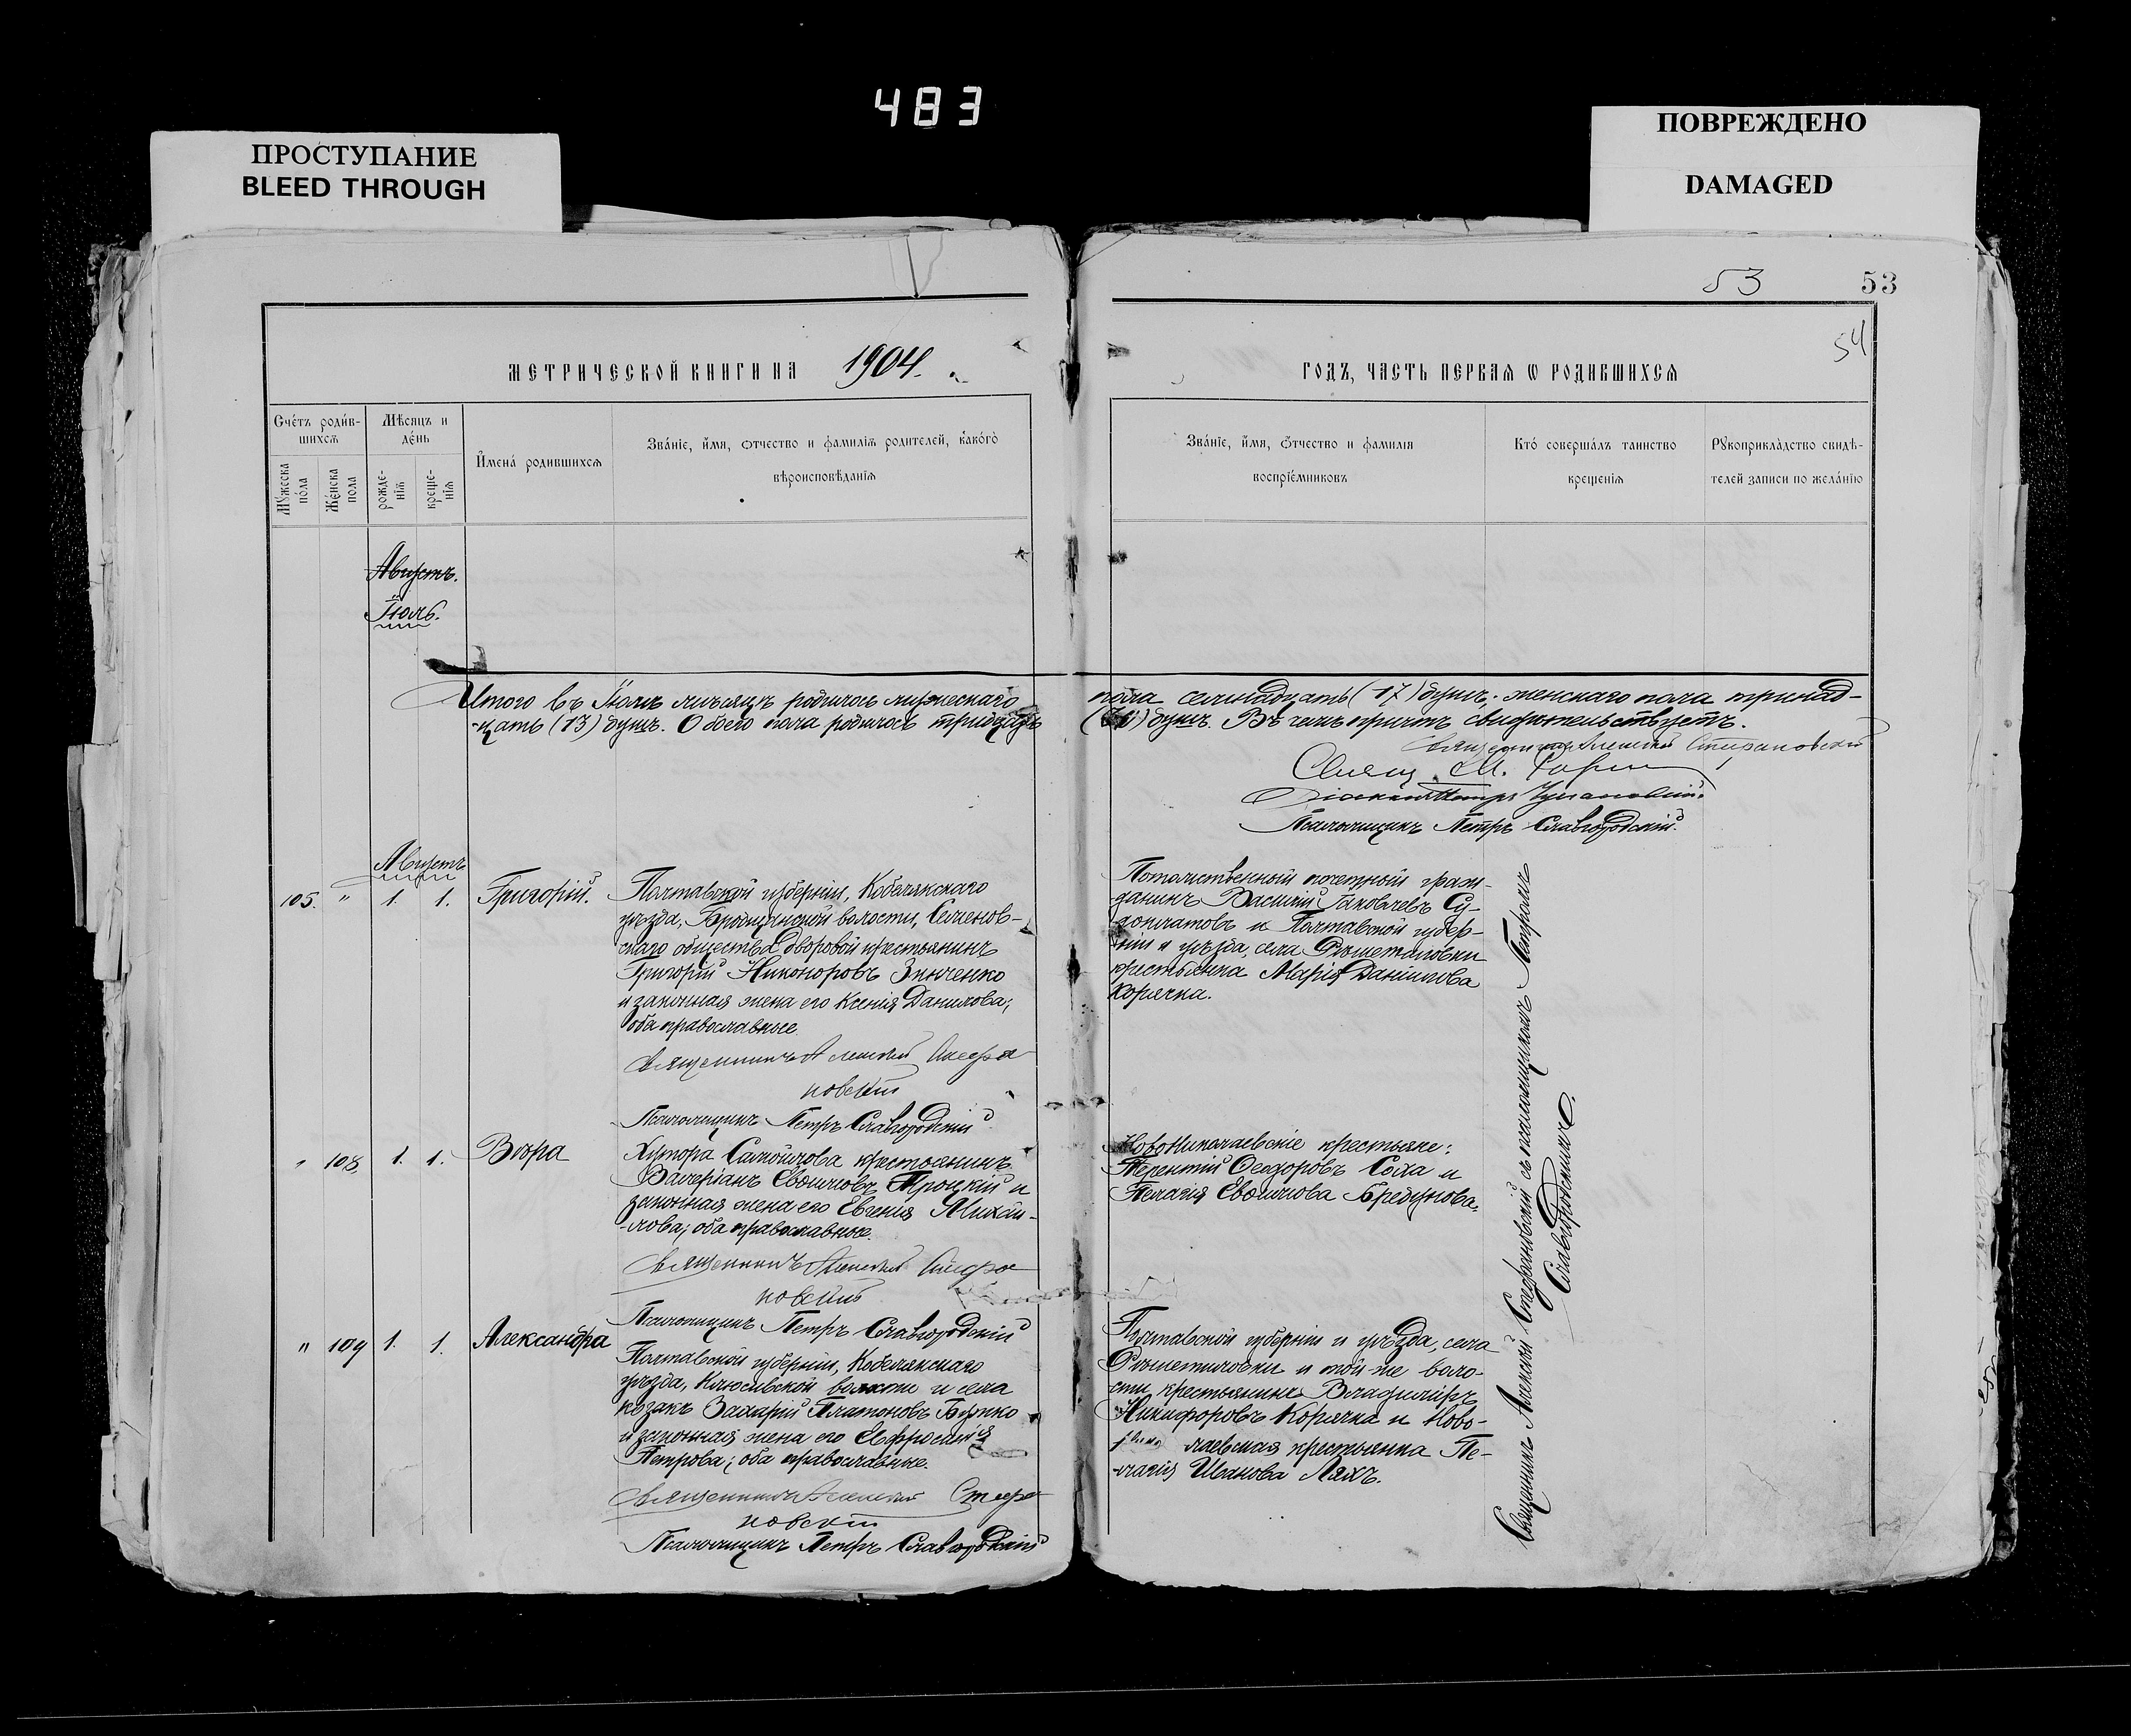 483
ПРОСТУПАНИЕ
BLEED THROUGH
ПОВРЕЖДЕНО
DAMAGED
53 53
54
МЕТРИЧЕСКОЙ КНИГИ НА 1904.
ГОДЪ, ЧАСТЬ ПЕРВАЯ Ѡ РОДИВШИХСЯ
Счетъ родив-
шихся
Мужеска
пола
Женска
пола
Мѣсяцъ и
день
рожде-
нія
креще-
нія
Имена родившихся
Званіе, имя, отчество и фамилія родителей, какого
вѣроисповѣданія
Званіе, имя, отчество и фамилія
воспріемниковъ
Кто совершалъ таинство
крещенія
Рукоприкладство свидѣ-
телей записи по желанію
Августъ.
Іюль.
Итого въ Іюлѣ мѣсяцѣ родилось мужескаго
пола семнадцать (17) душъ; женскаго пола тринад-
-цать (13) душъ. Обоего пола родилось тридцать
(30) душъ. Въ чемъ причтъ свидѣтельствуетъ.
Священникъ Алексѣй Стефановскій
Свящ. М.
Діаконъ Петръ
Псаломщикъ Петръ Славгородскій.
Августъ
105. " 1. 1. Григорій.
Полтавской губерніи, Кобелякскаго
уѣзда, Бродщанской волости, Семенов-
скаго общества дворовой крестьянинъ
Григорій Никоноровъ Зинченко
и законная жена его Ксенія Данилова;
оба православные
Священникъ Алексѣй Стефа
новскій
Псаломщикъ Петръ Славгородскій
Потомственный почетный граж-
данинъ Василій Яковлевъ Су-
доплатовъ и Полтавской губер-
ніи и уѣзда, села Рѣшетиловки
крестьянка Марія Даніилова
Корячка.
" 108. 1. 1. Вѣра
Хутора Самойлова крестьянинъ
Валеріанъ Евфимовъ Троцкій и
законная жена его Евгенія Михаи-
-лова; оба православные.
Священникъ Алексѣй Стефа
новскій
Псаломщикъ Петръ Славгородскій
Новониколаевскіе крестьяне:
Терентій Ѳеодоровъ Соха и
Пелагія Евфимова Бредунова.
" 109 1. 1. Александра
Полтавской губерніи, Кобелякскаго
уѣзда, Кишенской волости и села
козакъ Захарій Платоновъ Буряко
и законная жена его Евфросинія
Петрова; оба православные.
Священникъ Алексѣй Стефа
новскій
Псаломщикъ Петръ Славгородскій
Полтавской губерніи и уѣзда, села
Рѣшетиловки и той-же воло-
сти крестьянинъ Владиміръ
Никифоровъ Корячка и Ново-
лаевская крестьянка Пе-
-лагія Иванова Ляхъ.
Священникъ Алексѣй Стефановскій съ псаломщикомъ Петромъ
Славгородскимъ.